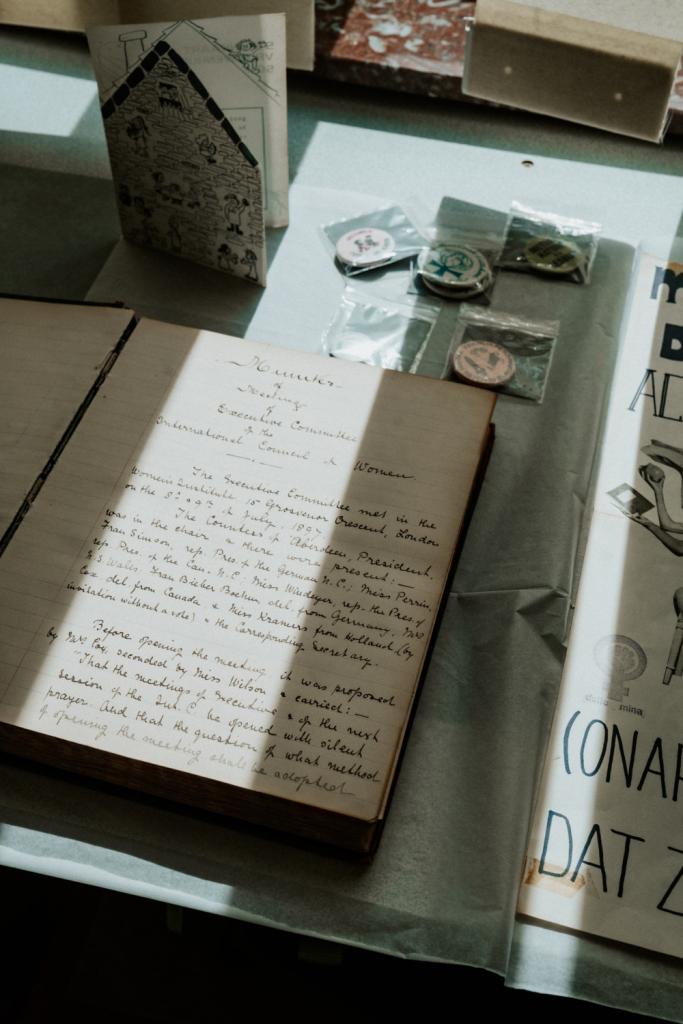 Minutes
of
Meeting
of
Executive Committee
of the
International Council of Women.
The Executive Committee met in the
Women's Institute 15 Grosvenor Crescent, London
on the 8th & 9th of July, 1897
The Countess of Aberdeen, President,
was in the chair & there were present:—
Frau Simson, rep. Pres. of the German N.C.; Miss Perrin,
rep. Pres. of the Can. N.C; Miss Windeyer, rep. the Pres. of
N.S. Wales; Frau Bieber Boehm, del. from Germany, Mrs
Cox del. from Canada, & Miss Kramers from Holland (by
invitation without a vote) & the Corresponding Secretary.
Before opening the meeting it was proposed
by Mrs Cox, seconded by Miss Wilson & carried:—
"That the meetings of Executive & of the next
session of the Int. C. be opened with silent
prayer. And that the question of what method
of opening the meeting shall be adopted
dolle mina
(ONAP
DAT Z